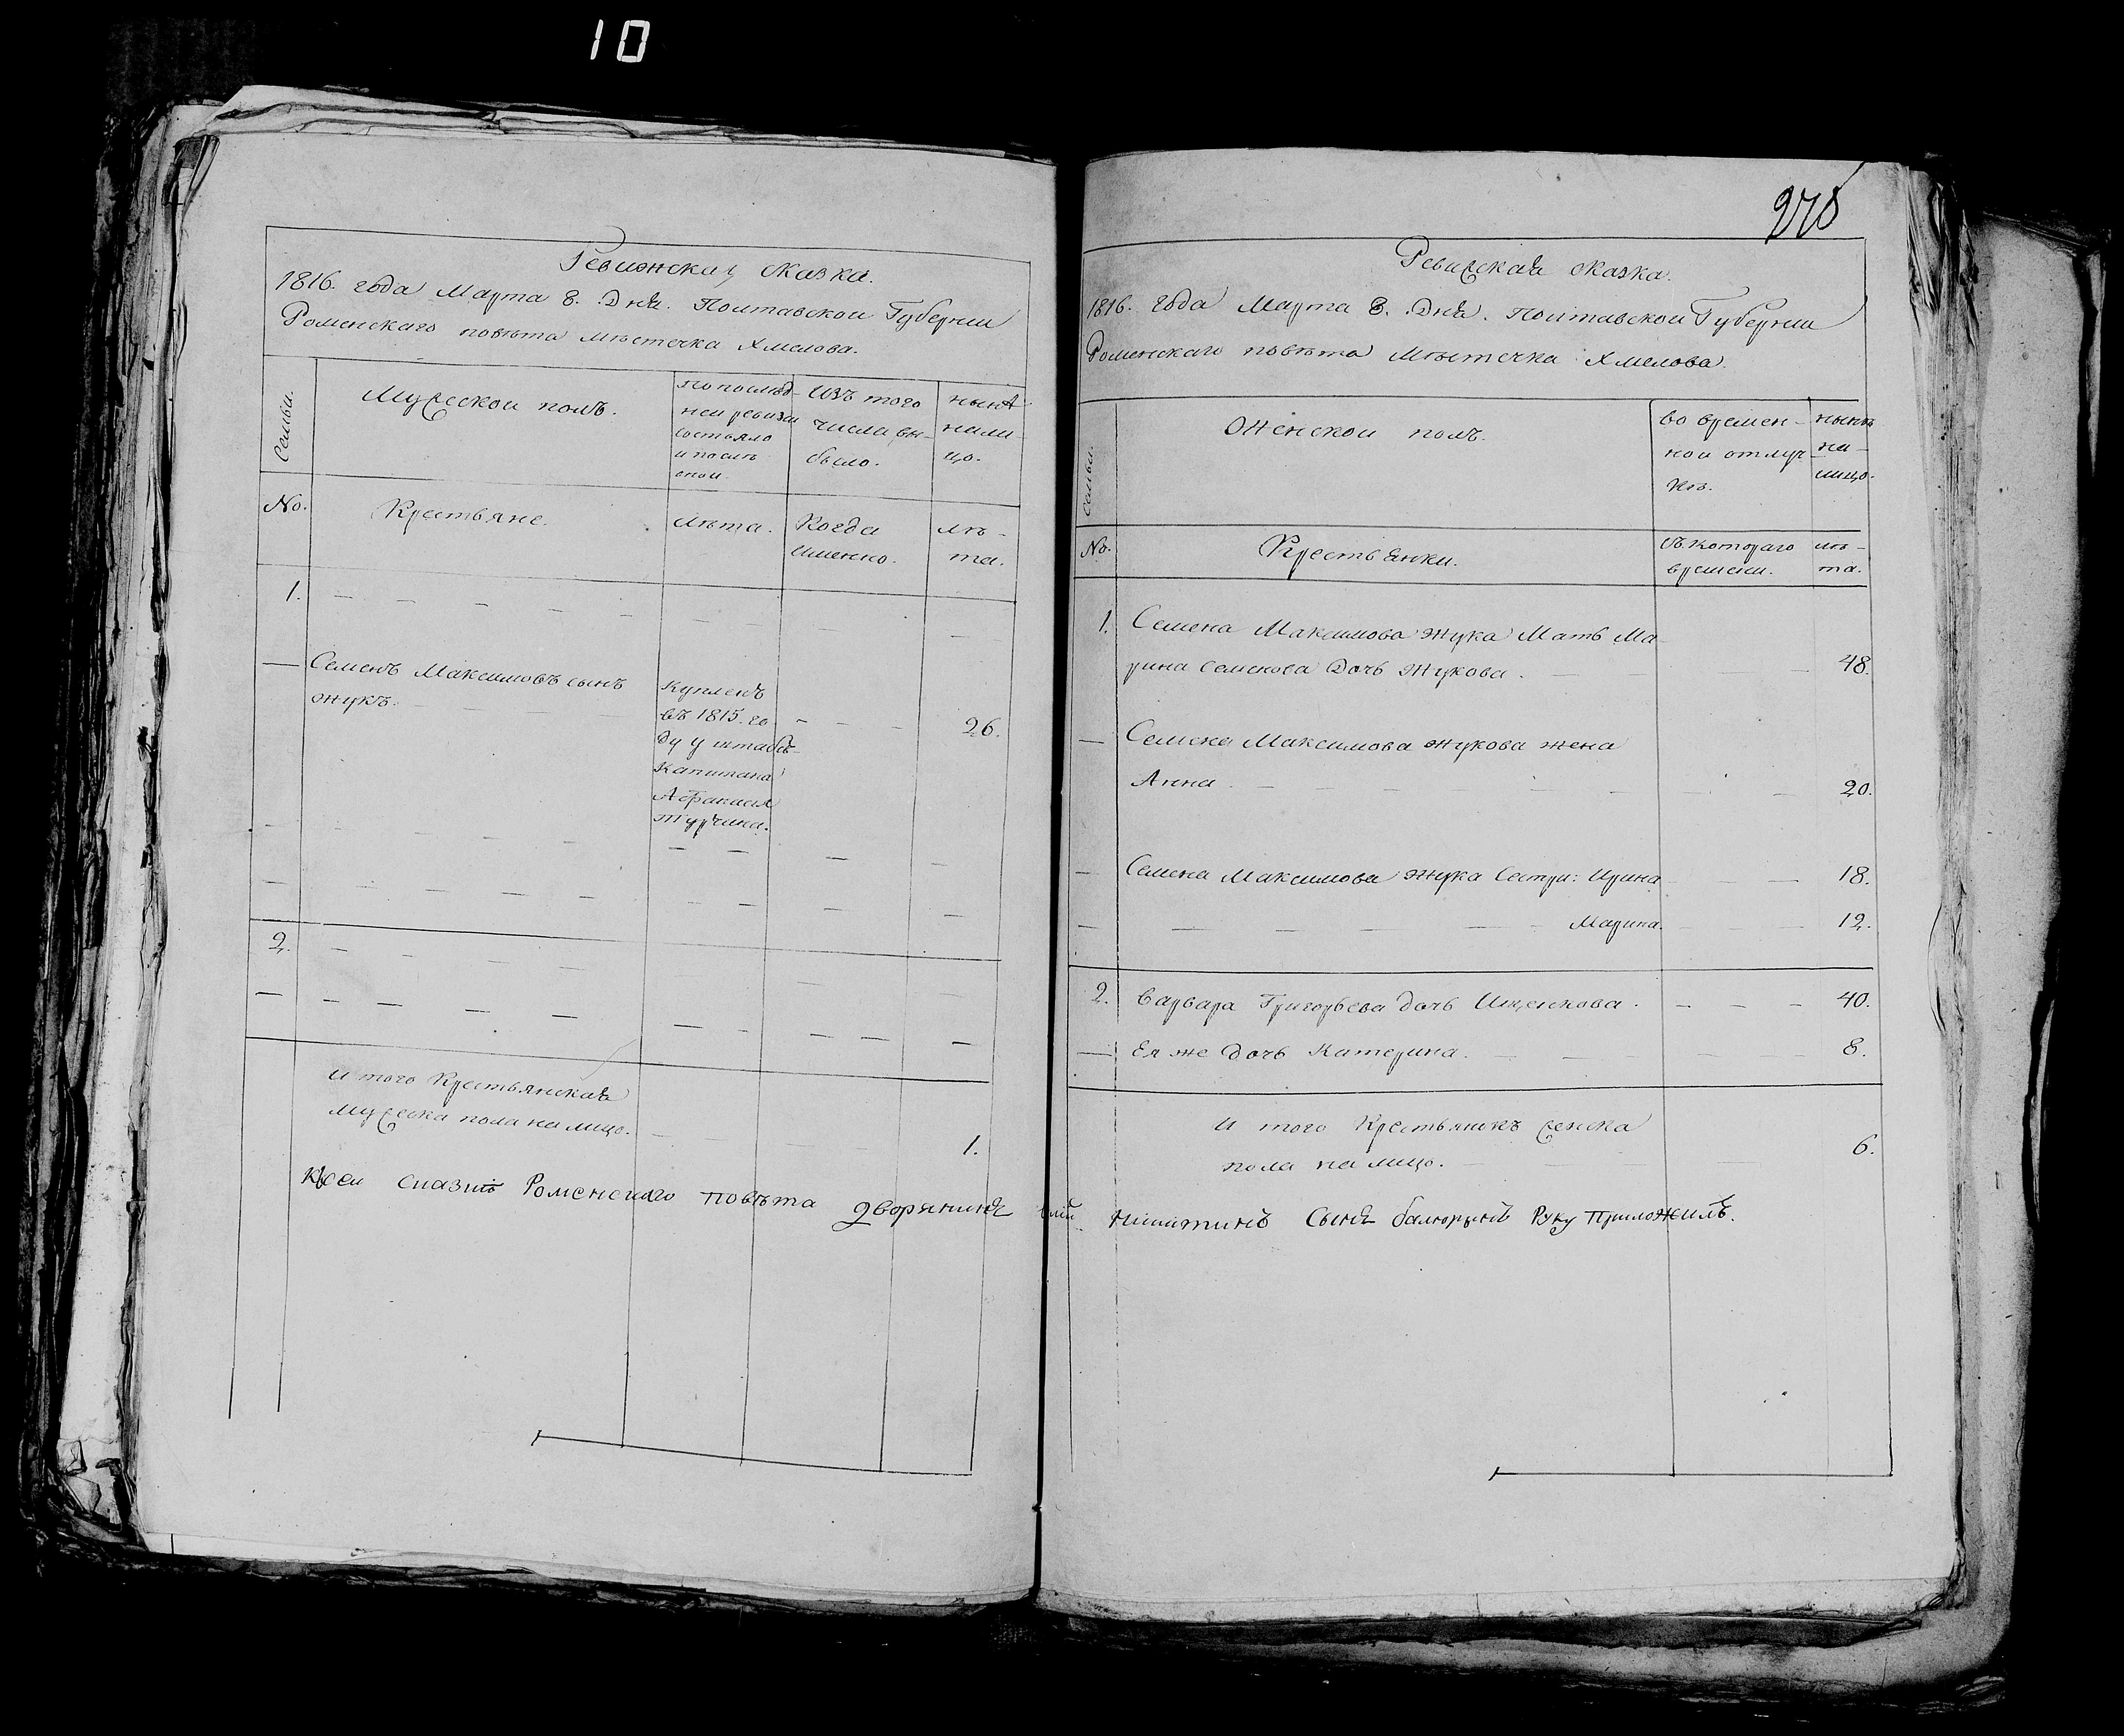 10
Ревижская сказка.
1816. года Марта 8. Дня. Полтавской Губернии
Роменскаго повѣта мѣстечка Хмелова.
Семьи.
Мужескои полъ.
по послѣд-
ней ревизи
состьяло
и послѣ
оной
Изъ того
числа вы-
было.
нынѣ
нали-
цо.
No.
Крестьяне.
лѣта.
Когда
именно.
лѣ-
та.
1.
Семенъ Максимовъ сынъ
жукъ.
купленъ
въ 1815. го
ду у штабсъ-
Капитана
Афанасия
Турчина.
26.
2.
и того Крестьянская
мужеска пола на лицо.
1.
К сей сказкѣ Роменскаго повѣта дворянинъ
275
Ревижская сказка.
1816. года Марта 8. Дня. Полтавской Губернии
Роменскаго повѣта Мѣстечка Хмелова.
Семьи.
Женской полъ.
во времен-
ной отлуч-
кѣ.
нынѣ
на-
лицо.
No.
Крестьянки.
съ котораго
времени.
лѣ-
та.
1. Семена Максимова жука Мать Ма-
рина семенова Дочь Жукова. 48.
Семена Максимова жукова жена
Анна 20.
Семена Максимова жука Сестры: Ирина 18.
Марина. 12.
2. Варвара Григорьева дочь Ищенкова. 40.
Ея же Дочь Катерина. 8.
и того Крестьянкъ женска
пола на лицо. 6.
Никитинъ Сынъ Руку Приложилъ.